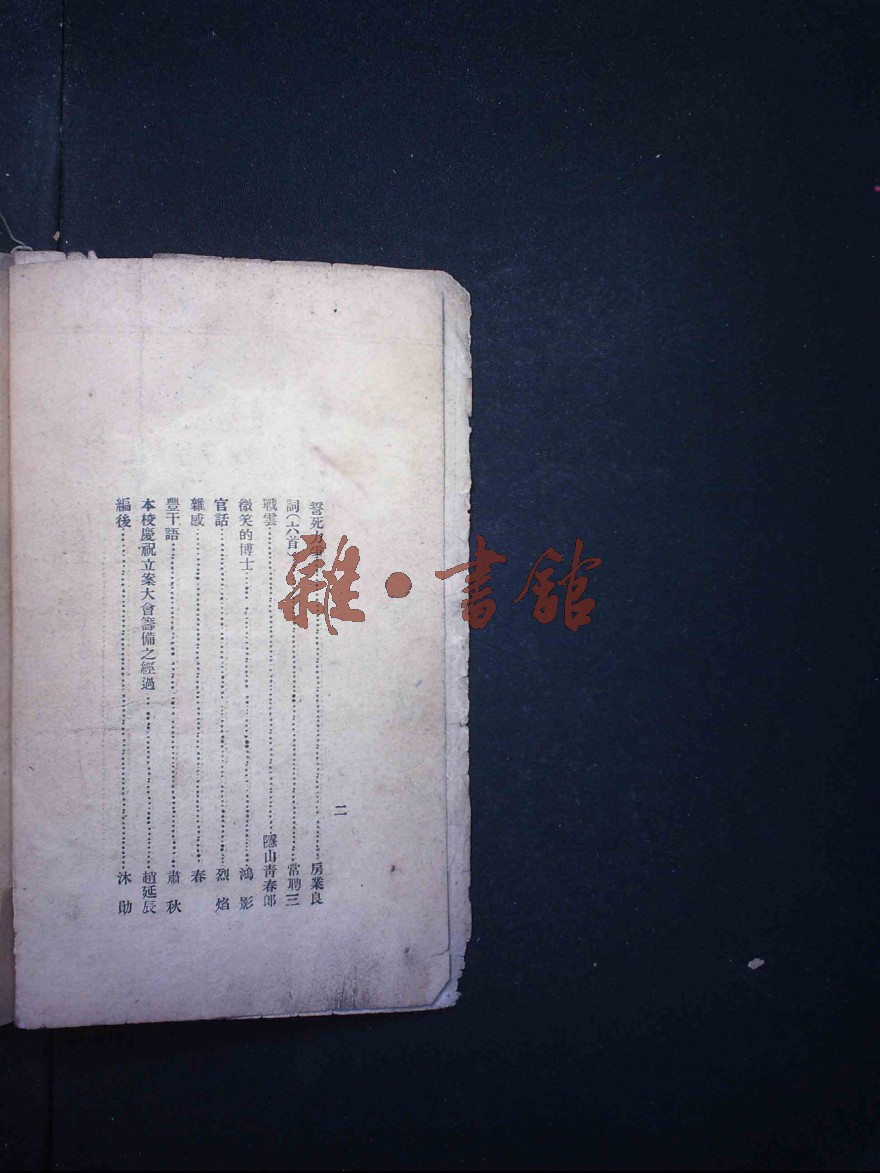 二
誓死力……房業良
詞(六首)……常聘三
戰雲……隱山青春郎
微笑的博士……鴻影
官話……烈焰
雜感……春
豐干語……蕭秋
本校慶祝立案大會籌備之經過……趙延辰
編後……沐勛
雜·書館